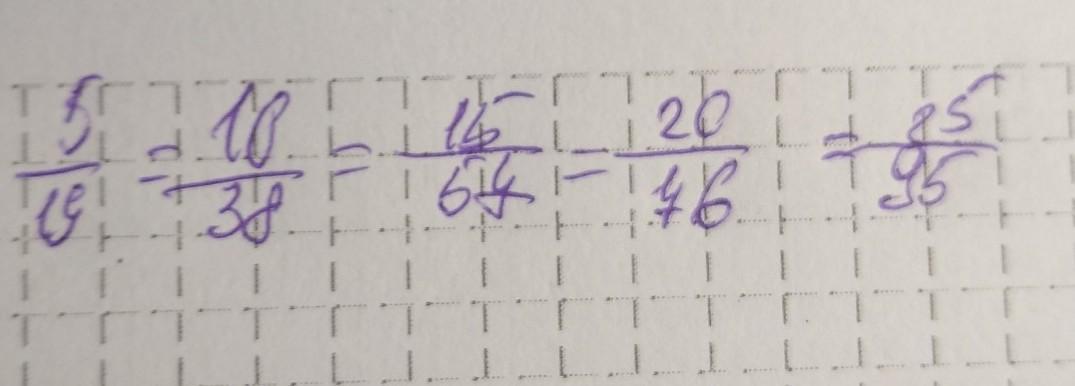 5/19 = 10/38 = 15/57 = 20/76 = 25/95